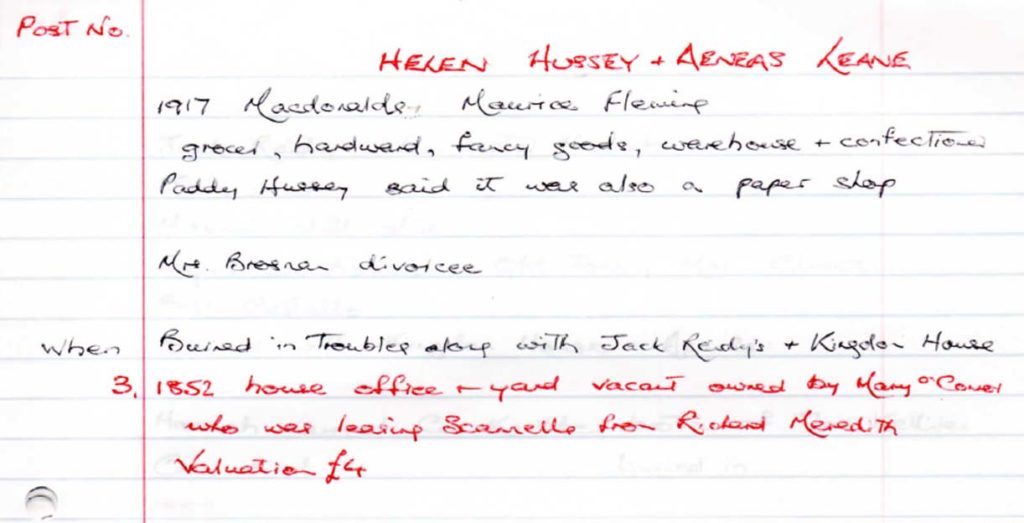 Post No.
HELEN HUSSEY + AENEAS LEANE
1917 Macdonalds, Maurice Fleming
grocer, hardward, fancy goods, warehouse + confectioner
Paddy Hussey said it was also a paper shop
Mrs. Brosnan divorcee
When Burned in Troubles along with Jack Reidy's + Kingdom House
3. 1852 house office + yard vacant owned by Mary O'Connor
who was leasing from Richard Meredith
Valuation £4